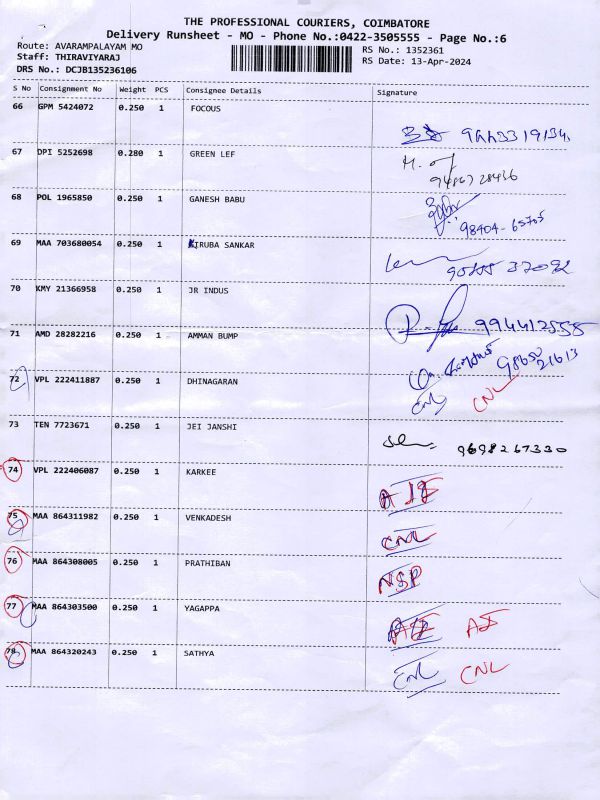 THE PROFESSIONAL COURIERS, COIMBATORE
Delivery Runsheet - MO - Phone No.:0422-3505555 - Page No.:6
Route: AVARAMPALAYAM MO
RS No.: 1352361
Staff: THIRAVIYARAJ
RS Date: 13-Apr-2024
DRS No.: DCJB135236106
S No Consignment No Weight PCS Consignee Details Signature
66 GPM 5424072 0.250 1 FOCOUS
67 DPI 5252698 0.280 1 GREEN LEF
94867 28436
68 POL 1965850 0.250 1 GANESH BABU
98404-65705
69 MAA 703680054 0.250 1 KIRUBA SANKAR
70 KMY 21366958 0.250 1 JR INDUS
994412555
71 AMD 28282216 0.250 1 AMMAN BUMP
98650
21613
72 VPL 222411887 0.250 1 DHINAGARAN CNL CNL
73 TEN 7723671 0.250 1 JEI JANSHI
9698267330
74 VPL 222406087 0.250 1 KARKEE
75 MAA 864311982 0.250 1 VENKADESH CNL
76 MAA 864308005 0.250 1 PRATHIBAN NSP
77 MAA 864303500 0.250 1 YAGAPPA
78 MAA 864320243 0.250 1 SATHYA CNL CNL